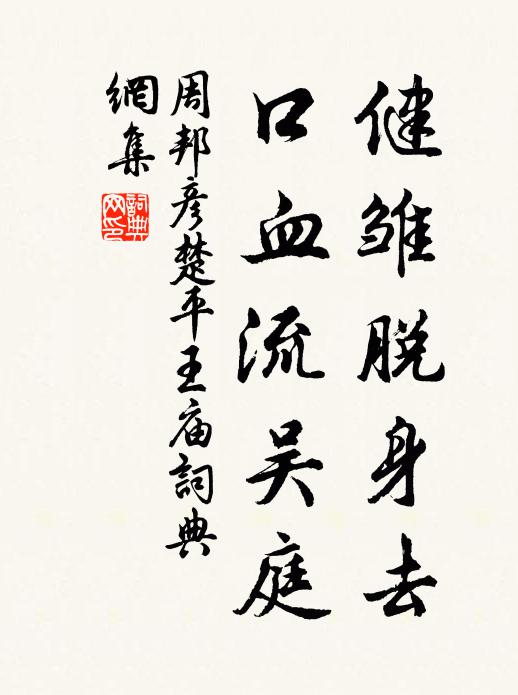 健雏脱身去
口血流吴庭
周邦彦楚平王庙詞典
網集
詞典
网印